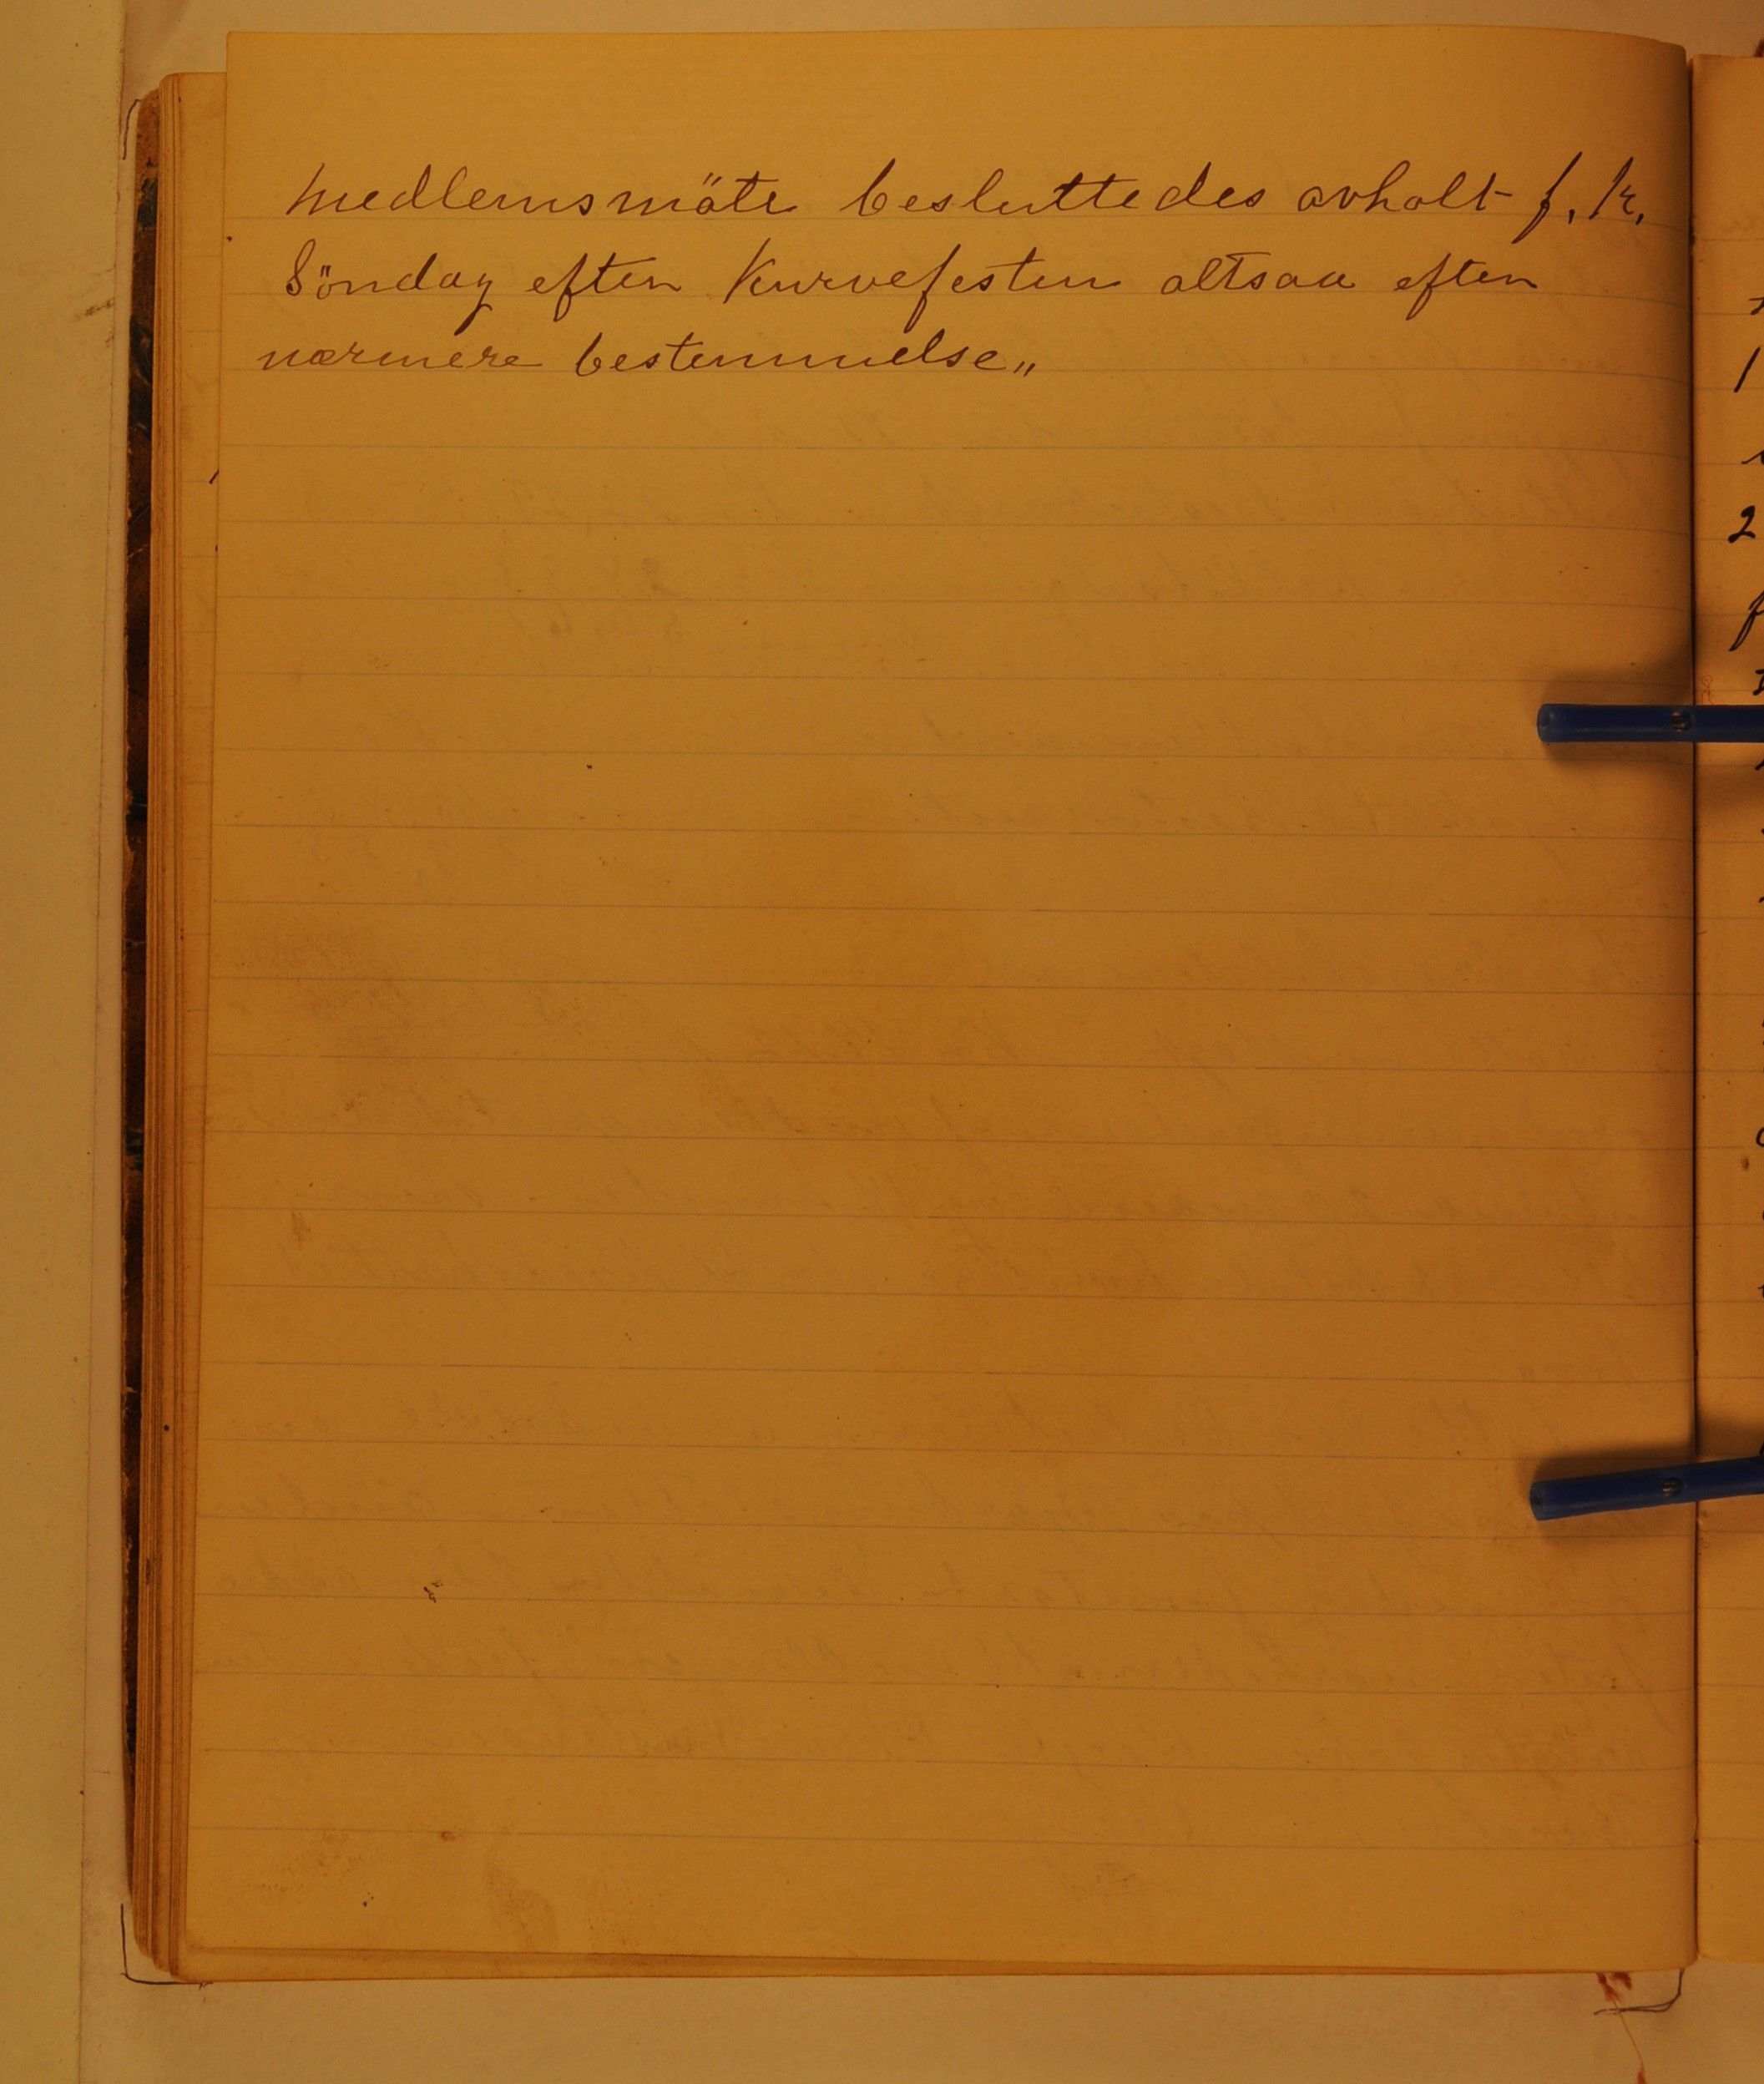 Medlemsmöte besluttedes avholt f. k.
Söndag efter Kurvefesten altsaa efter
nærmere bestemmelse„